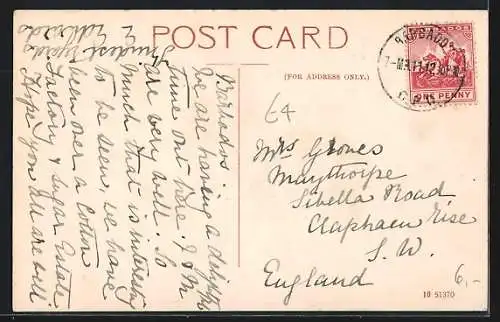 POST CARD
(FOR ADDRESS ONLY.)
BARBADOS
G.P.O.
ONE PENNY
£4
Mrs Groves
Maythorpe
Sibella Road
Clapham Rise
S.W.
England
6,-
10 51370
Barbados.
We are having a delightful
time out here. J & M
are very well. So
much that is interesting
to be seen, we have
been over a Cotton
Factory & Sugar Estate.
Hope you all are well
Kindest regards